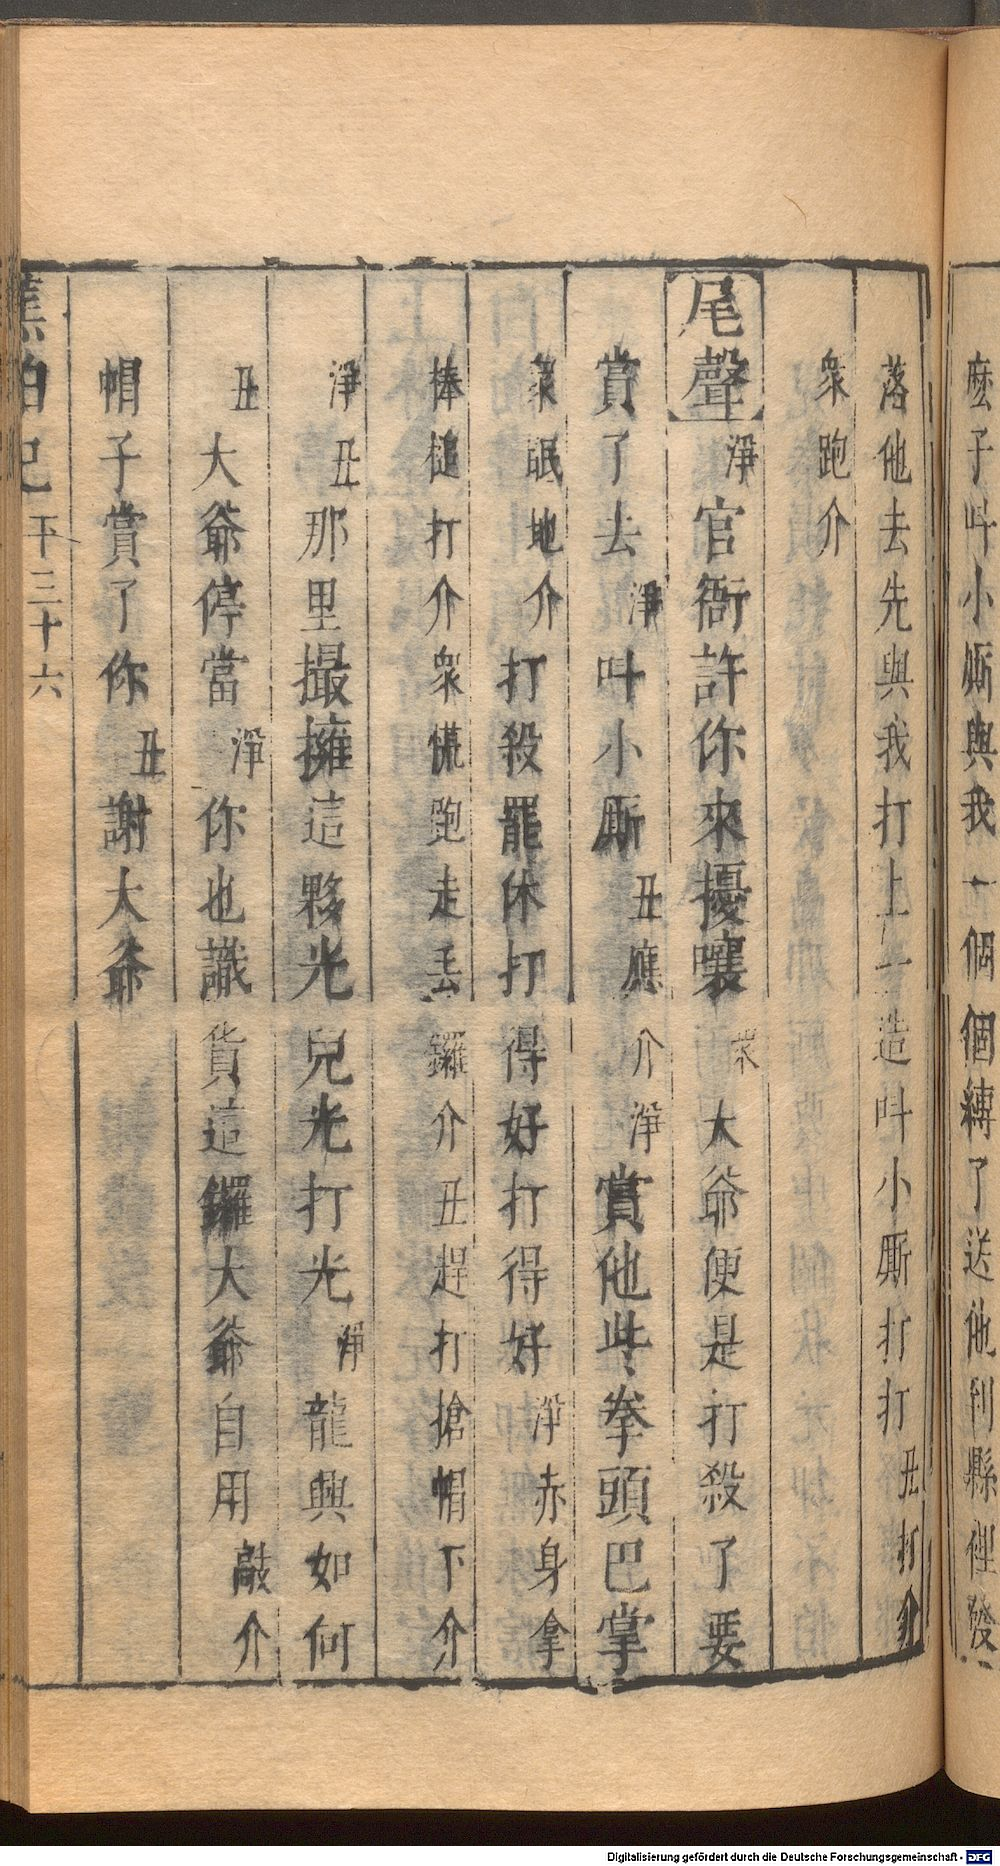 麽子叫小厮與我一個個縛了送他到縣裡發
落他去先與我打上一造叫小厮打打丑打介
衆跑介
尾聲淨官衙許你來擾嚷衆大爺便是打殺了要
賞了去淨叫小厮丑應介淨賞他些拳頭巴掌
衆眠地介打殺罷休打得好打得好淨赤身拿
棒槌打介衆慌跑走丢鑼介丑趕打搶帽下介
淨丑那里撮擁這夥光兒光打光淨龍興如何
丑大爺停當淨你也識貨這鑼大爺自用敲介
帽子賞了你丑謝大爺
蕉帕記 下 三十六
Digitalisierung gefördert durch die Deutsche Forschungsgemeinschaft - DFG